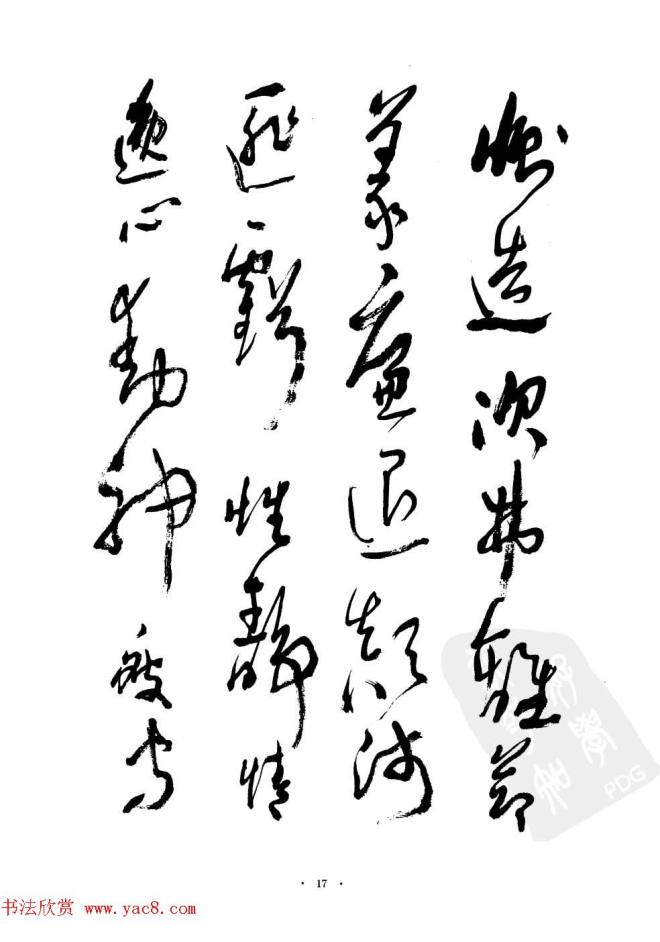 惻造次弗離節
義廉退顛沛
匪虧性靜情
逸心動神疲守
· 17 ·
书法欣赏 www.yac8.com
PDG